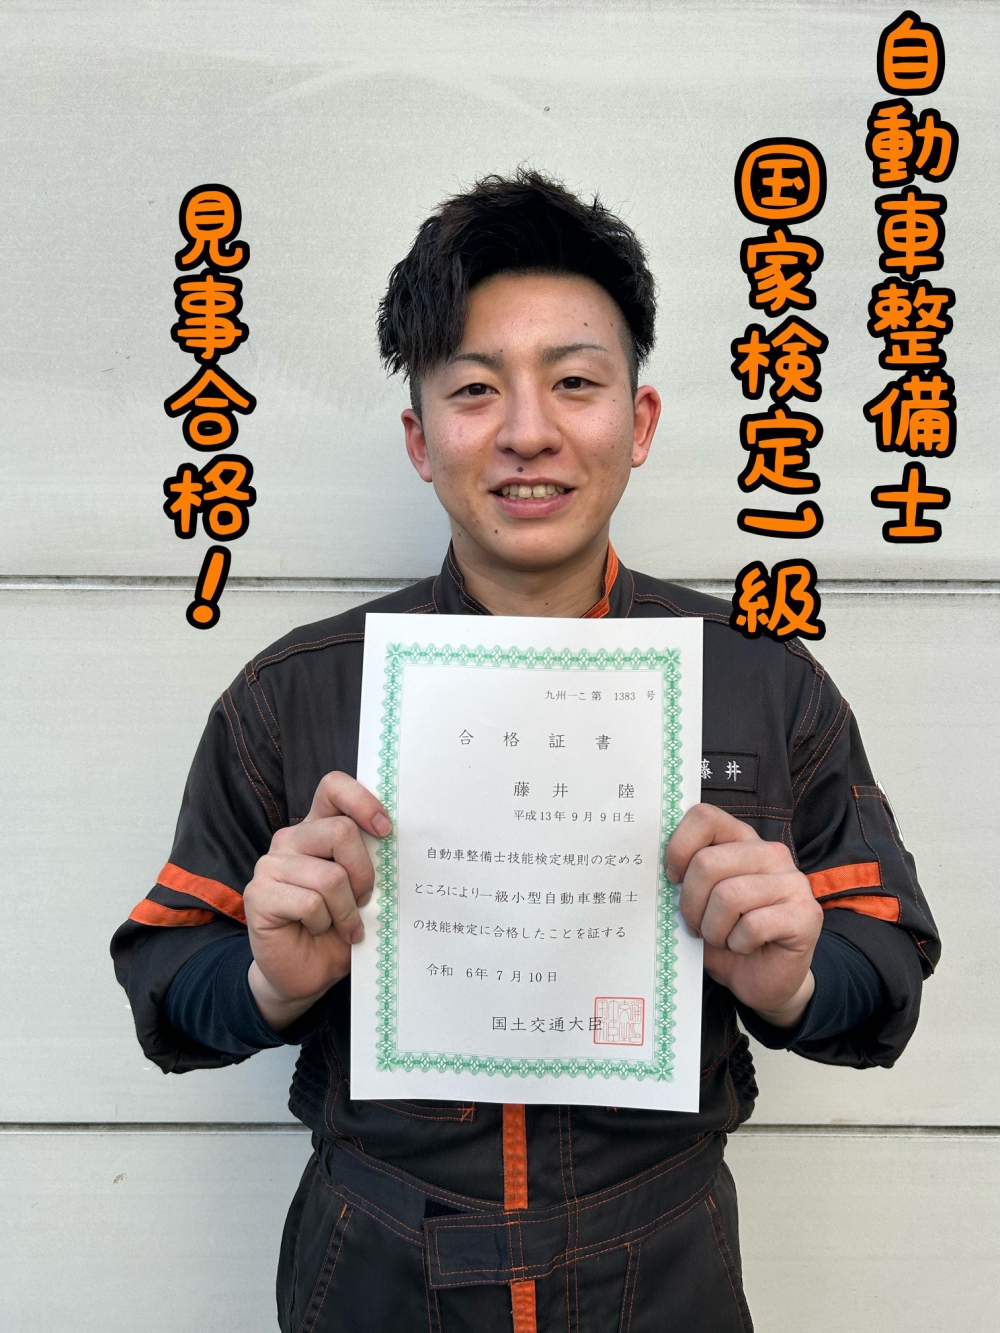 自動車整備士
国家検定一級
見事合格!
九州一こ 第 1383 号
合格証書
藤井 陸
平成13年9月9日生
自動車整備士技能検定規則の定める
ところにより一級小型自動車整備士
の技能検定に合格したことを証する
令和 6年 7月 10日
国土交通大臣
藤井